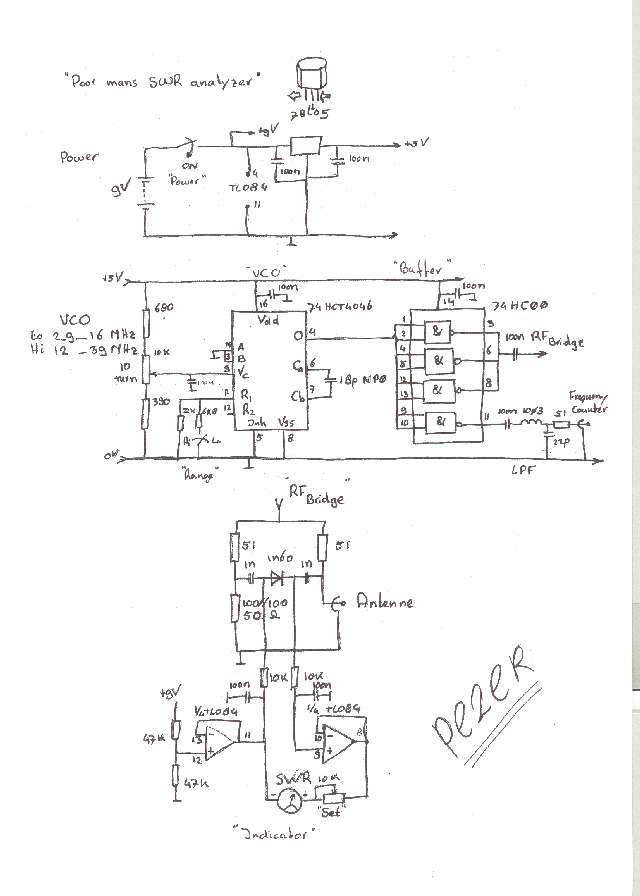 "Poor mans SWR analyzer"
78L05
Power
9V
ON
"Power"
+9V
4
TL084
11
100n
100n
+5V
+5V
"VCO"
"Buffer"
100n
16
74HCT4046
100n
14
74HC00
VCO
Lo 2.9 - 16 MHz
Hi 12 - 39 MHz
680
10K
10
turn
390
100n
Vdd
A
B
Vc
R1
R2
Inh
Vss
O
Ca
Cb
3
9
11
12
5
8
4
6
7
18p NPO
1
2
4
5
12
13
9
10
&
&
&
&
3
6
8
11
100n
RF Bridge
Frequency
Counter
100n
10µ3
51
22p
22K
6K8
Hi
Lo
"Range"
0V
LPF
"RF Bridge"
51
51
1n
1N60
1n
100//100
50 Ω
Antenne
10K
10K
100n
100n
+9V
47K
47K
1/4 TL084
13
12
11
1/4 TL084
10
9
8
SWR
10K
"Set"
"Indicator"
PE2ER